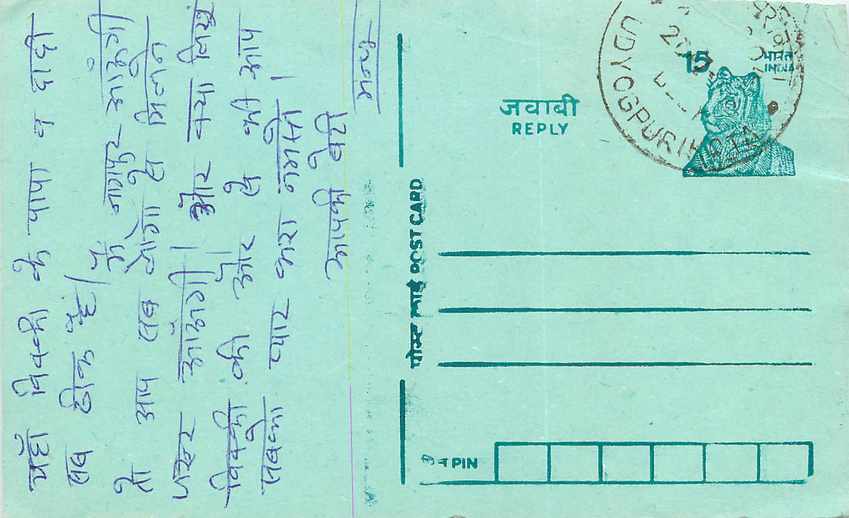 यहाँ विक्की के पापा व दादी
सब ठीक हैं। मैं नागपुर आऊंगी
तो आप सब लोगो से मिलने
जरूर आऊंगी। और क्या लिखूं
विक्की की और से भी आप
सबको प्यार करा नमस्ते।
आपकी बेटी
जवाबी
REPLY
15
भारत
INDIA
UDYOGPURI KOTA
पोस्ट कार्ड POST CARD
पिन PIN